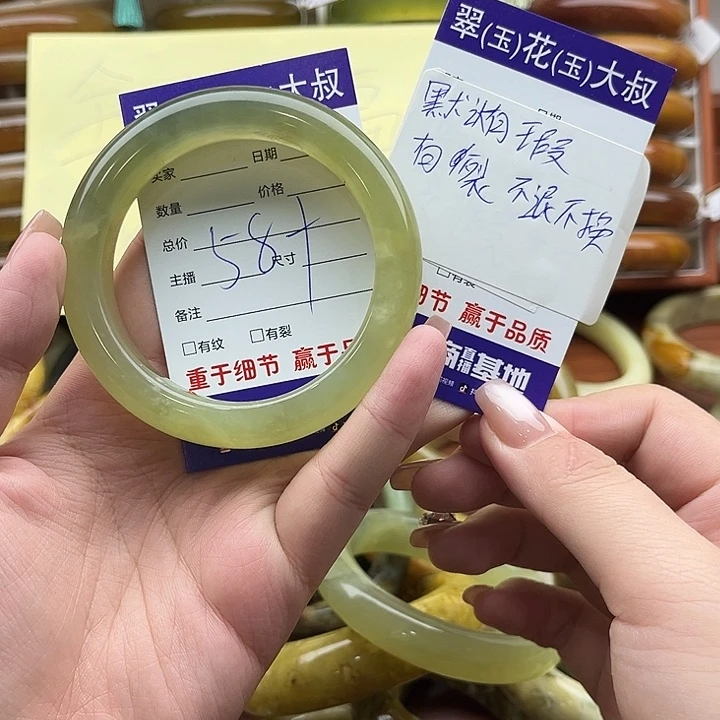 翠(玉)花(玉)大叔
大叔
买家
日期
数量
价格
总价
主播
58+
尺寸
备注
□有纹
□有裂
重于细节 赢于品
日期
有 裂 不退不换
□有裂
细节 赢于品质
商直播基地